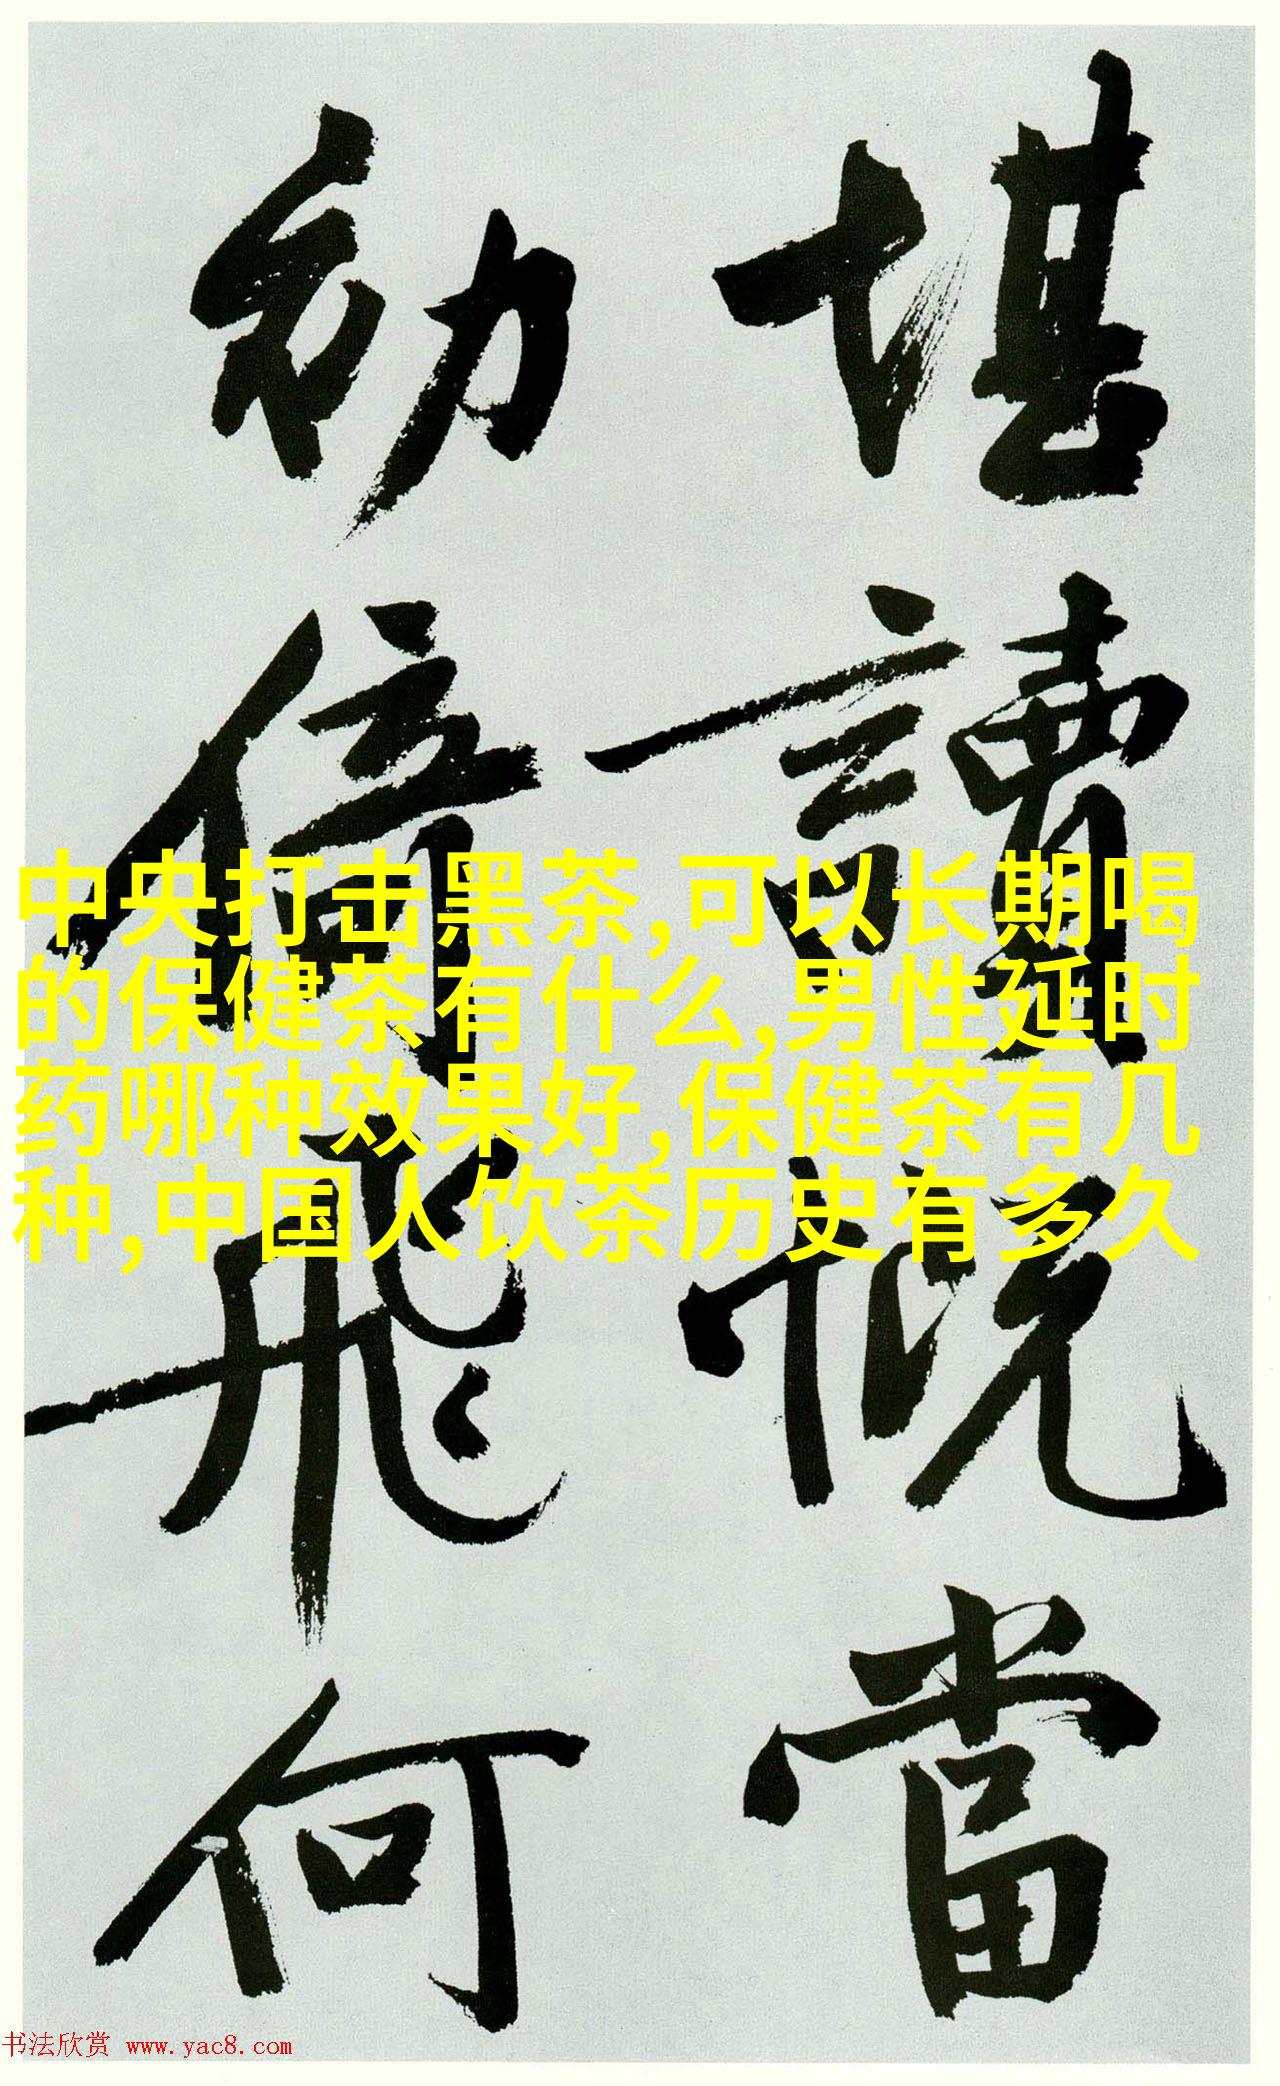 堪讀慨當
初倚飛何
中央打击黑茶,可以长期喝
的保健茶有什么,男性延时
药哪种效果好,保健茶有几
种,中国人饮茶历史有多久
书法欣赏 www.yac8.com